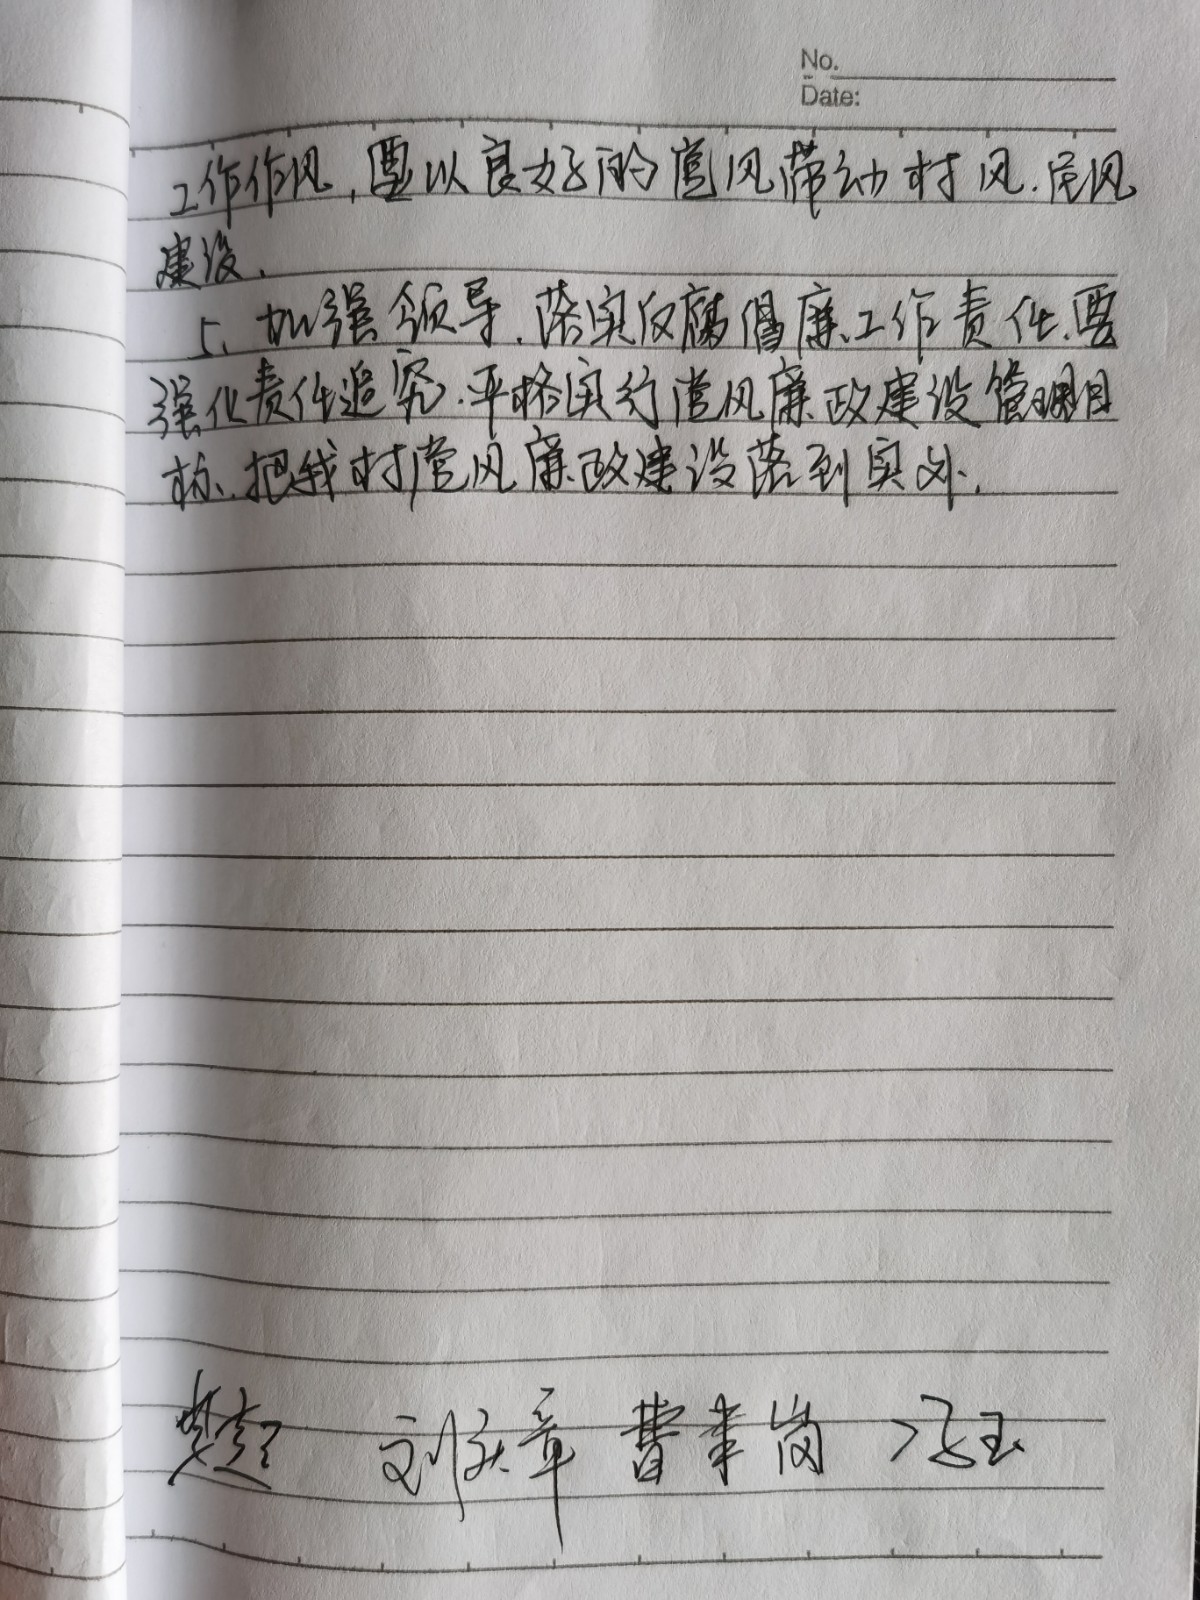 No.
Date:
工作作风,要以良好的党风带动村风.民风
建设.
5、加强领导.落实反腐倡廉工作责任.要
强化责任追究.严格实行党风廉政建设管理目
标.把我村党风廉政建设落到实处.
刘庆章 曹来岗 冯玉